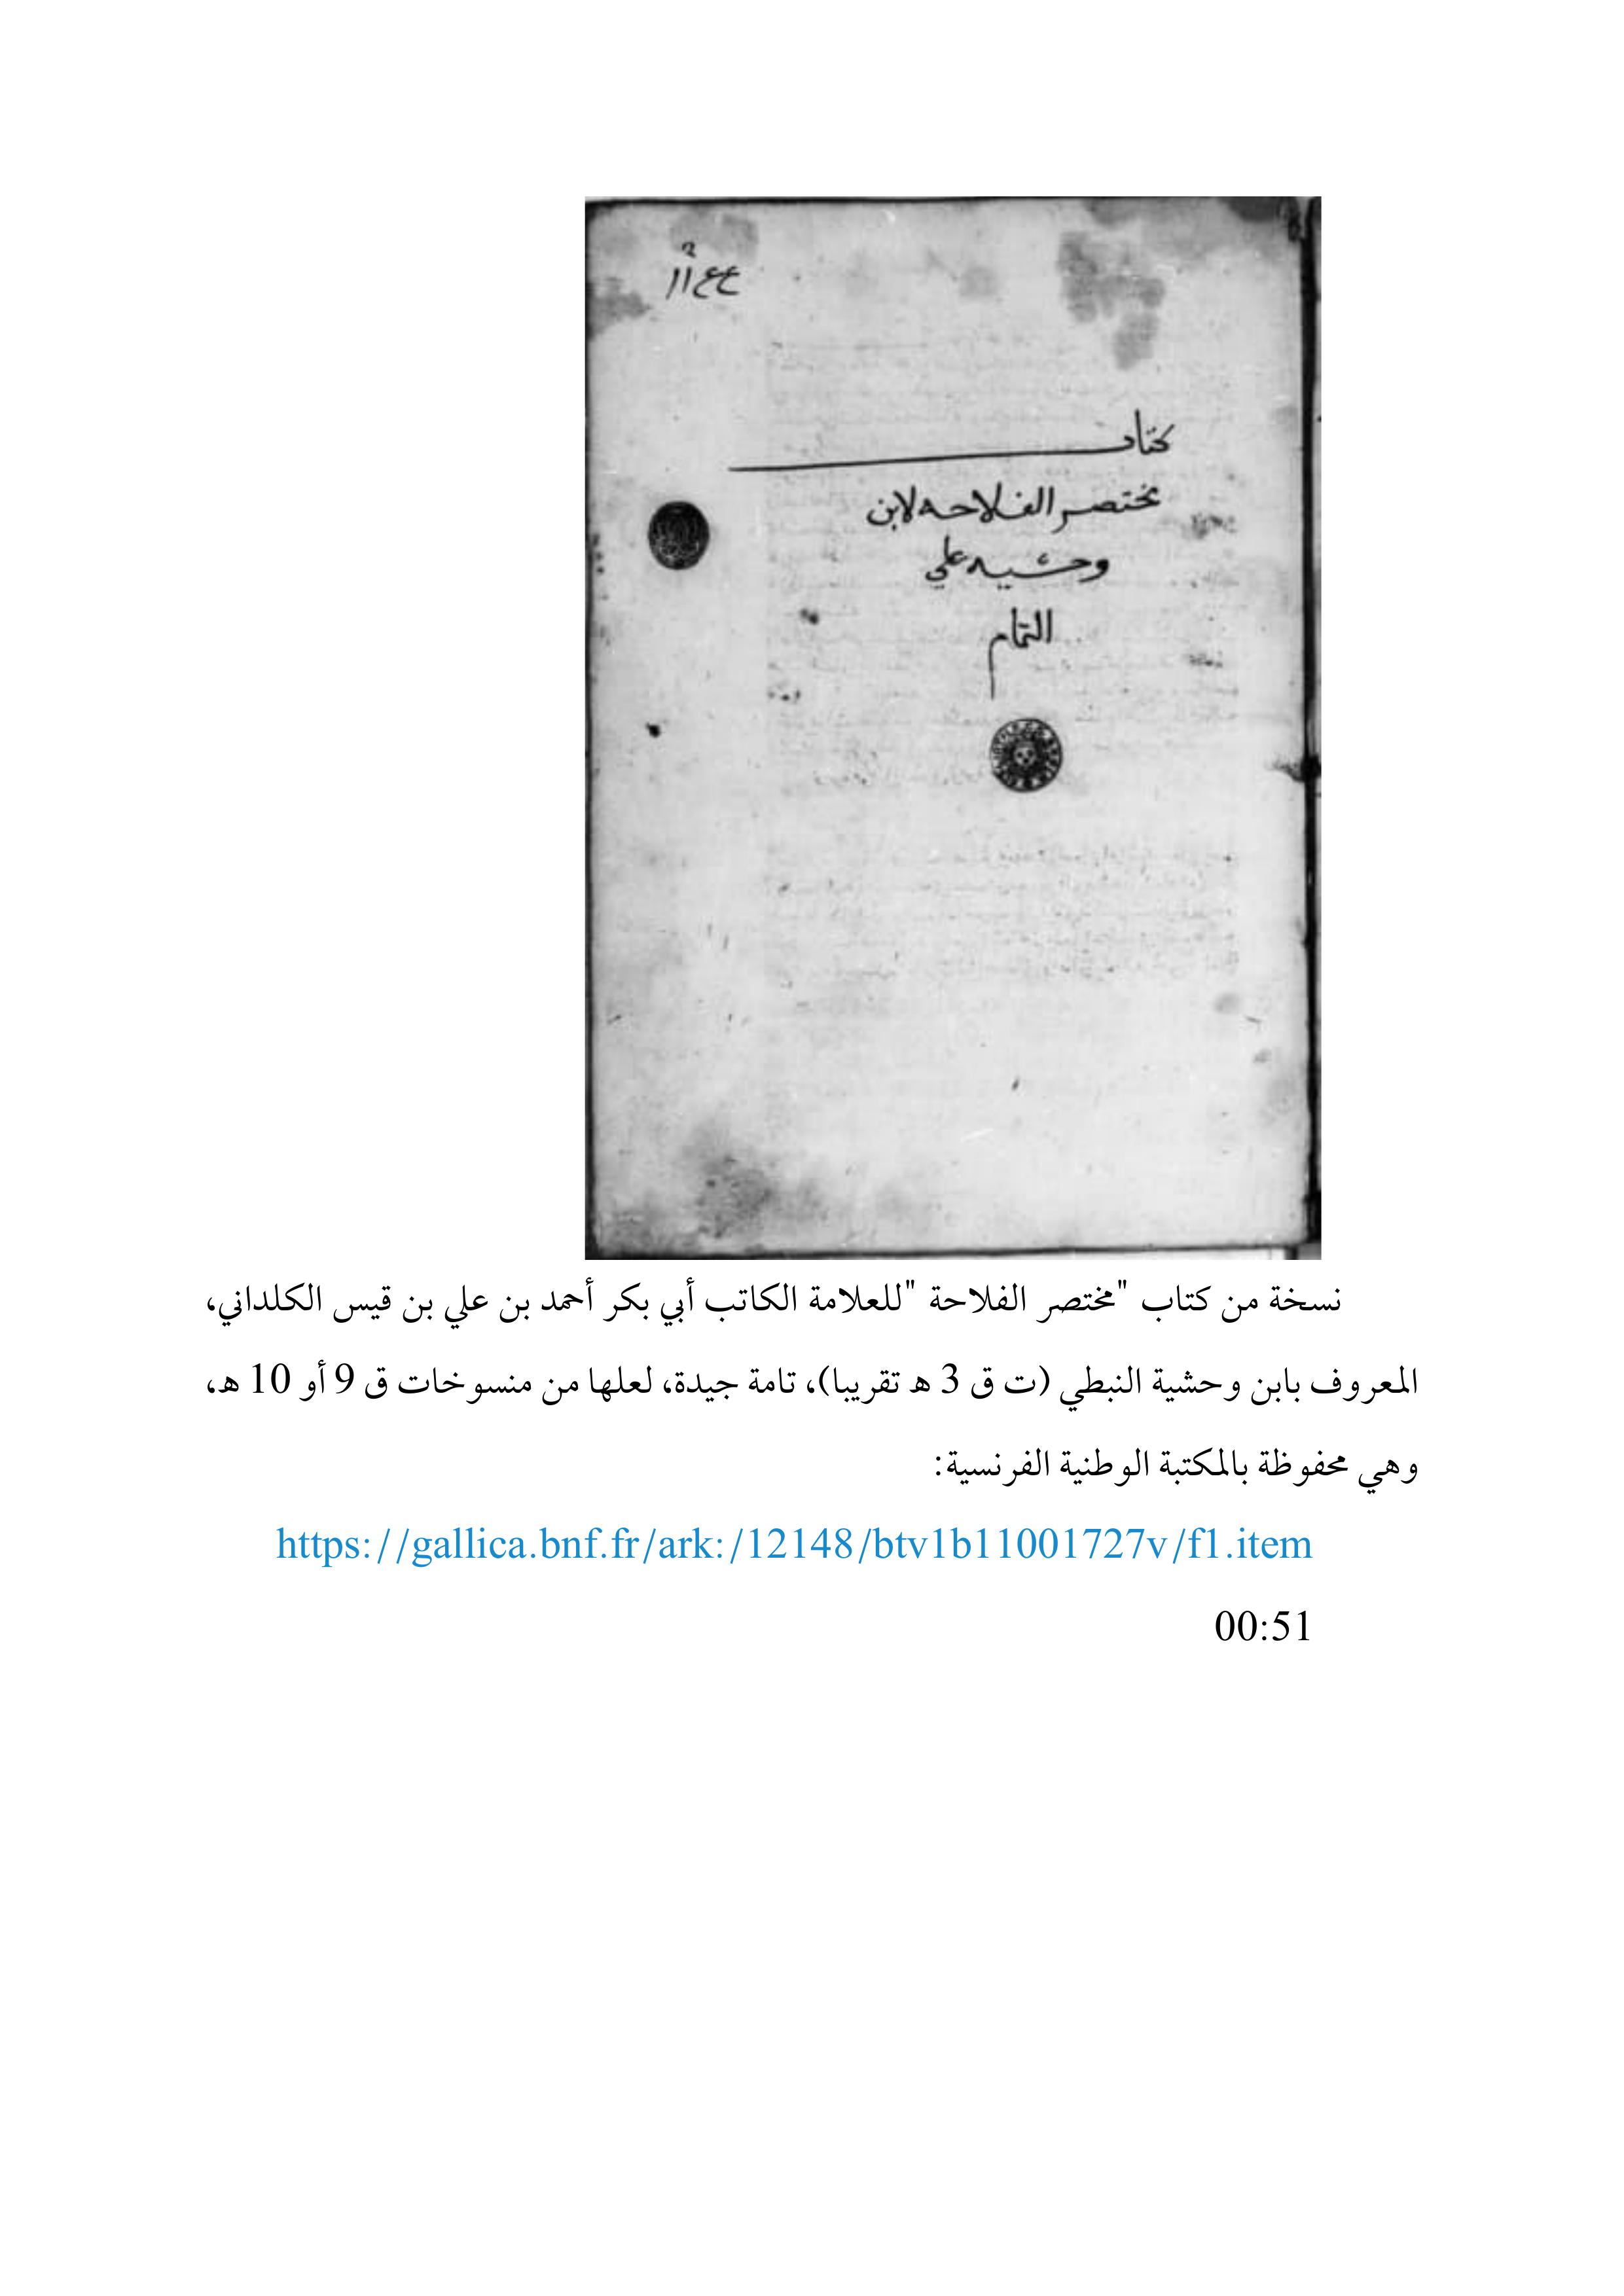 كتاب
مختصر الفلاحه لابن
وحشيه علي
التمام
نسخة من كتاب "مختصر الفلاحة "للعلامة الكاتب أبي بكر أحمد بن علي بن قيس الكلداني،
المعروف بابن وحشية النبطي (ت ق 3 ه تقريبا)، تامة جيدة، لعلها من منسوخات ق 9 أو 10 ه،
وهي محفوظة بالمكتبة الوطنية الفرنسية:
https://gallica.bnf.fr/ark:/12148/btv1b11001727v/f1.item
00:51